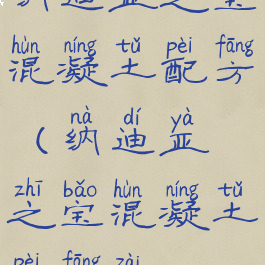 纳迪亚之宝
hùn níng tǔ pèi fāng
混凝土配方
nà dí yà
（纳迪亚
zhī bǎo hùn níng tǔ
之宝混凝土
pèi fāng zài